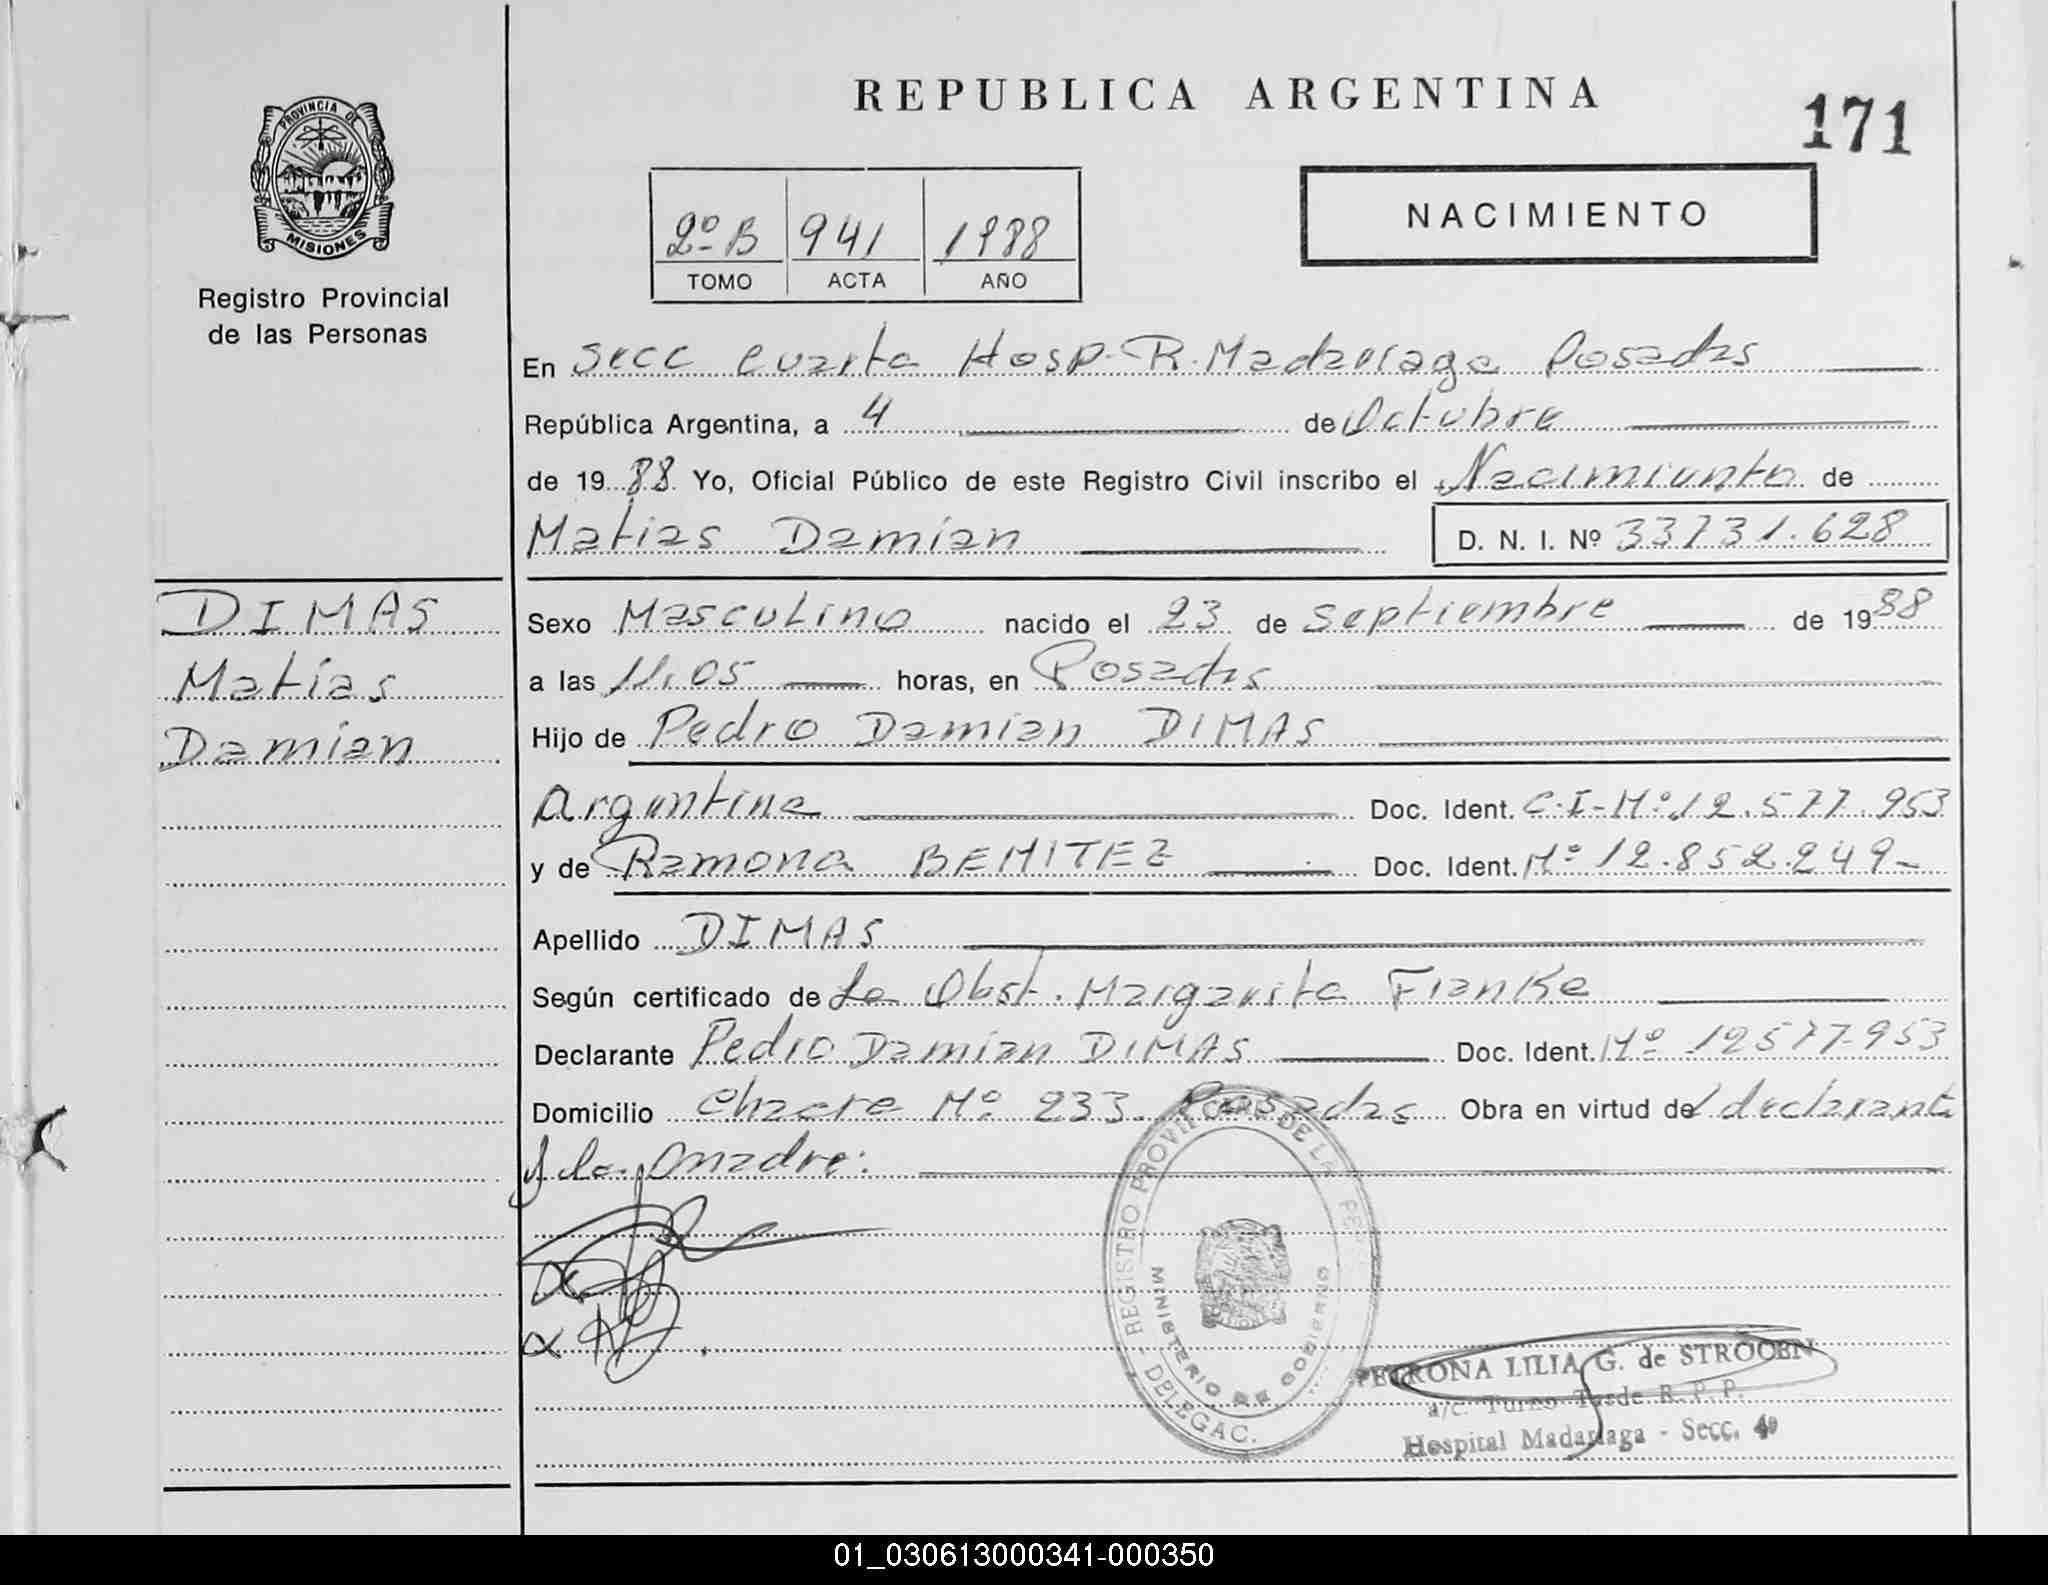 PROVINCIA DE
MISIONES
Registro Provincial
de las Personas
REPUBLICA ARGENTINA
171
2º B 941 1988
TOMO ACTA AÑO
NACIMIENTO
En Secc cuarta Hosp. R. Madariaga Posadas
República Argentina, a 4 de Octubre
de 1988 Yo, Oficial Público de este Registro Civil inscribo el Nacimiento de
Matias Damian D. N. I. Nº 33731.628
DIMAS
Matias
Damian
Sexo Masculino nacido el 23 de Septiembre de 1988
a las 11,05 horas, en Posadas
Hijo de Pedro Damian DIMAS
Argentina Doc. Ident. C.I-Mº.12.577.953
y de Ramona BENITEZ Doc. Ident. Mº 12.852.249-
Apellido DIMAS
Según certificado de La Obst. Margarita Franke
Declarante Pedro Damian DIMAS Doc. Ident. Mº 12577953
Domicilio Chacra Nº 233. Posadas Obra en virtud de declarante
y la madre.
REGISTRO PROVINCIAL DE LA PER
MINISTERIO DE GOBIERNO
DELEGAC.
PETRONA LILIA G. de STROCEN
a/c. Turno Tarde R. P. P.
Hospital Madariaga - Secc. 4º
01_030613000341-000350